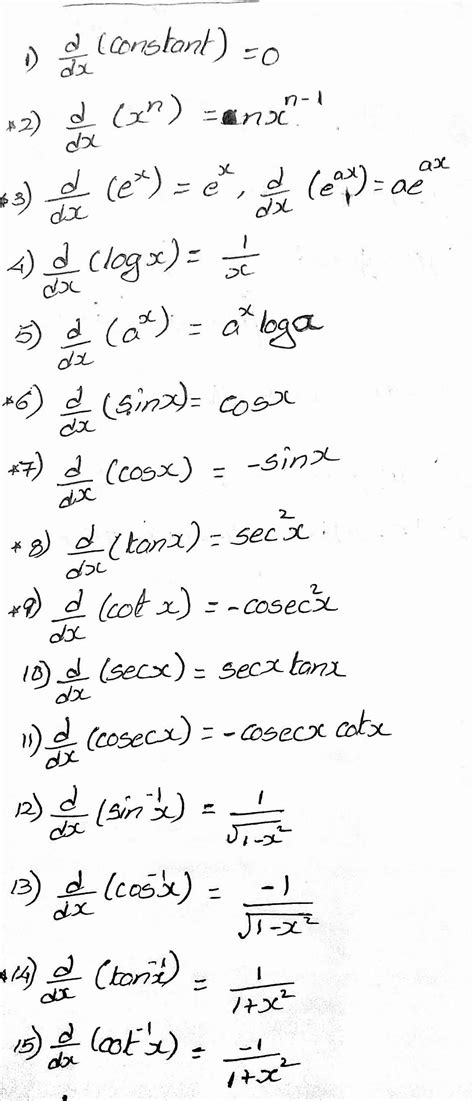 1) d/dx (constant) = 0
*2) d/dx (xⁿ) = nxⁿ⁻¹
*3) d/dx (eˣ) = eˣ, d/dx (eᵃˣ) = aeᵃˣ
4) d/dx (log x) = 1/x
5) d/dx (aˣ) = aˣ log a
*6) d/dx (sin x) = cos x
*7) d/dx (cos x) = -sin x
*8) d/dx (tan x) = sec²x.
*9) d/dx (cot x) = -cosec²x
10) d/dx (sec x) = sec x tan x
11) d/dx (cosec x) = -cosec x cot x
12) d/dx (sin⁻¹x) = 1/√1-x²
13) d/dx (cos⁻¹x) = -1/√1-x²
*14) d/dx (tan⁻¹x) = 1/1+x²
15) d/dx (cot⁻¹x) = -1/1+x²